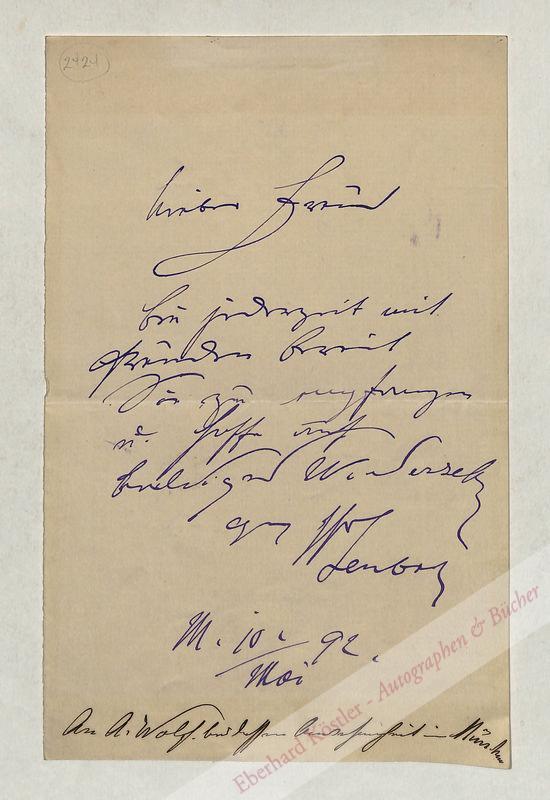 2424
Lieber Freund
bin jederzeit mit
Freuden bereit
Sie zu empfangen
u. hoffe auf
baldiges Wiederseh
Ihr
Lenbach
M. 10. 92.
Mai
An A. Wolf. bei dessen Anwesenheit in München
Eberhard Köstler - Autographen & Bücher